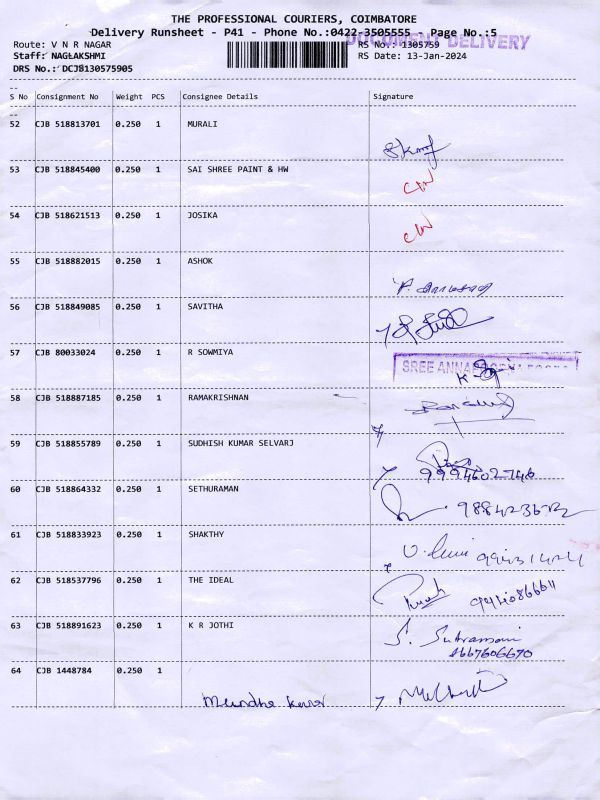 THE PROFESSIONAL COURIERS, COIMBATORE
Delivery Runsheet - P41 - Phone No.:0422-3505555 Page No.:5
DOCUMENT DELIVERY
Route: V N R NAGAR RS No.: 1305759
Staff: NAGLAKSHMI RS Date: 13-Jan-2024
DRS No.: DCJB130575905
S No Consignment No Weight PCS Consignee Details Signature
52 CJB 518813701 0.250 1 MURALI
53 CJB 518845400 0.250 1 SAI SHREE PAINT & HW
54 CJB 518621513 0.250 1 JOSIKA
55 CJB 518882015 0.250 1 ASHOK
56 CJB 518849085 0.250 1 SAVITHA
57 CJB 80033024 0.250 1 R SOWMIYA
SREE
58 CJB 518887185 0.250 1 RAMAKRISHNAN
59 CJB 518855789 0.250 1 SUDHISH KUMAR SELVARJ
9994602746
60 CJB 518864332 0.250 1 SETHURAMAN
61 CJB 518833923 0.250 1 SHAKTHY
62 CJB 518537796 0.250 1 THE IDEAL
63 CJB 518891623 0.250 1 K R JOTHI
64 CJB 1448784 0.250 1